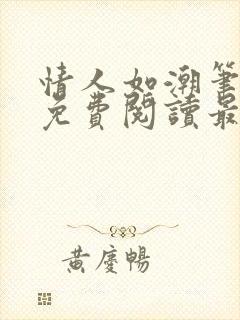 情人如潮筆
免費閱讀最
黃慶暢